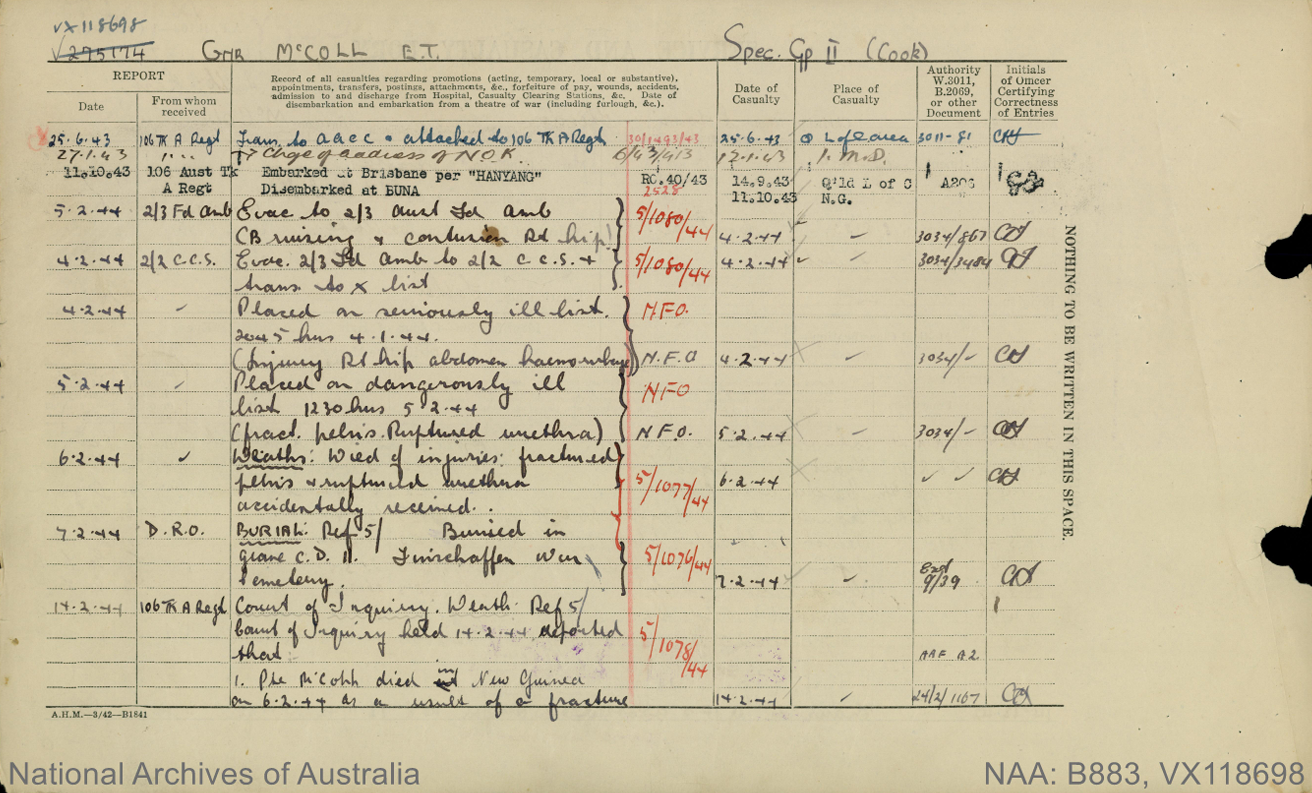 VX118698
V275174 GNR McCOLL E.T. Spec. Gp II (Cook)
REPORT
Date
From whom received
Record of all casualties regarding promotions (acting, temporary, local or substantive),
appointments, transfers, postings, attachments, &c., forfeiture of pay, wounds, accidents,
admission to and discharge from Hospital, Casualty Clearing Stations, &c. Date of
disembarkation and embarkation from a theatre of war (including furlough, &c.).
Date of Casualty
Place of Casualty
Authority W.3011, B.2069, or other Document
Initials of Officer Certifying Correctness of Entries
25.6.43 106 TK A Regt Trans. to AACC & attached to 106 TK A Regt 30/1493/43 25.6.43 L of C area 3011-81
27.1.43 Chge of address of N.O.K. 12.1.43
11.10.43 106 Aust Tk Embarked at Brisbane per "HANYANG" RO.40/43 14.9.43 Q'ld L of C A203
A Regt Disembarked at BUNA 2528 11.10.43 N.G.
5.2.44 2/3 Fd Amb Evac to 2/3 Aust Fd Amb 5/1080/44
(Bruising & contusion Rt hip) 4.2.44 3034/867
4.2.44 2/2 C.C.S. Evac. 2/3 Fd Amb to 2/2 C.C.S. & 5/1080/44 4.2.44 3034/3484
trans to X list
4.2.44 Placed on seriously ill list. NFO.
2045 hrs 4.1.44.
(Injury Rt hip abdomen haemorrhage) N.F.O 4.2.44 3034/-
5.2.44 Placed on dangerously ill NFO
list 1230 hrs 5.2.44
(fract. pelvis. Ruptured urethra) N.F.O. 5.2.44 3034/-
6.2.44 Deaths: Died of injuries: fractured
pelvis & ruptured urethra 5/1077/44 6.2.44
accidentally received.
7.2.44 D.R.O. BURIAL: Ref 5/ Buried in
grave C.D. 11. Finschaffen War 5/1076/44
Cemetery. 7.2.44 9/39
14.2.44 106 TK A Regt Court of Inquiry. Death. Ref 5/
Court of Inquiry held 14.2.44 reported 5/1078/44
that AAF A2
1. Pte McColl died in New Guinea
on 6.2.44 as a result of a fracture 14.2.44 24/2/1167
NOTHING TO BE WRITTEN IN THIS SPACE.
A.H.M.—3/42—B1841
National Archives of Australia
NAA: B883, VX118698